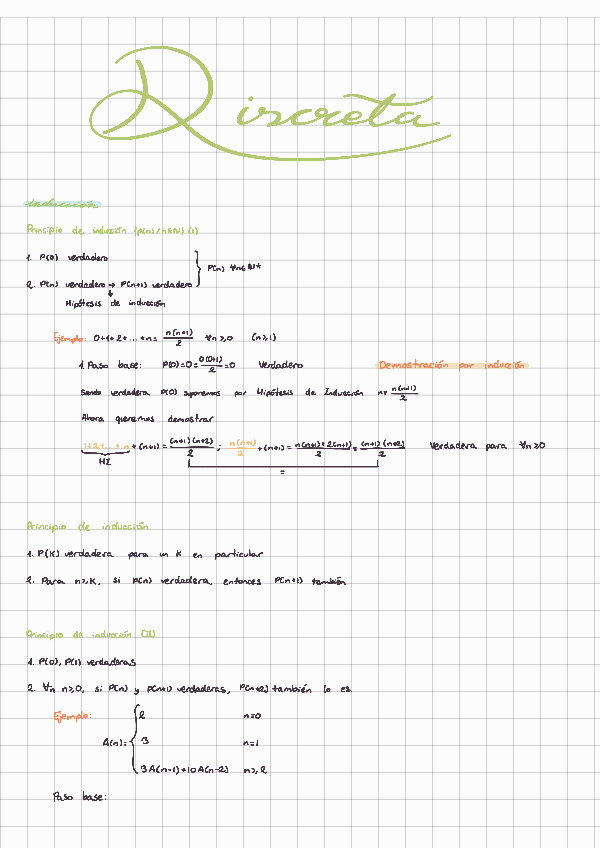 Discreta
inducción
Principio de inducción (P(n)/n∈N) (I)
1. P(0) verdadero
2. P(n) verdadero → P(n+1) verdadero } P(n) ∀n∈N*
Hipótesis de inducción
Ejemplo: 0+1+2+...+n = n(n+1)/2 ∀n≥0 (n≥1)
1. Paso base: P(0)=0=0(0+1)/2=0 Verdadero Demostración por inducción
Siendo verdadera P(0) suponemos por Hipótesis de Inducción n= n(n+1)/2
Ahora queremos demostrar
1+2+...+n+(n+1) = (n+1)(n+2)/2 ; n(n+1)/2 +(n+1) = n(n+1)+2(n+1)/2 = (n+1)(n+2)/2 Verdadera para ∀n≥0
HI
=
Principio de inducción
1. P(K) verdadera para un K en particular
2. Para n≥K, si P(n) verdadera, entonces P(n+1) también
Principio de inducción (II)
1. P(0), P(1) verdaderas
2. ∀n n≥0, si P(n) y P(n+1) verdaderas, P(n+2) también lo es
Ejemplo:
2 n=0
A(n)= { 3 n=1
3A(n-1)+10A(n-2) n≥2
Paso base: